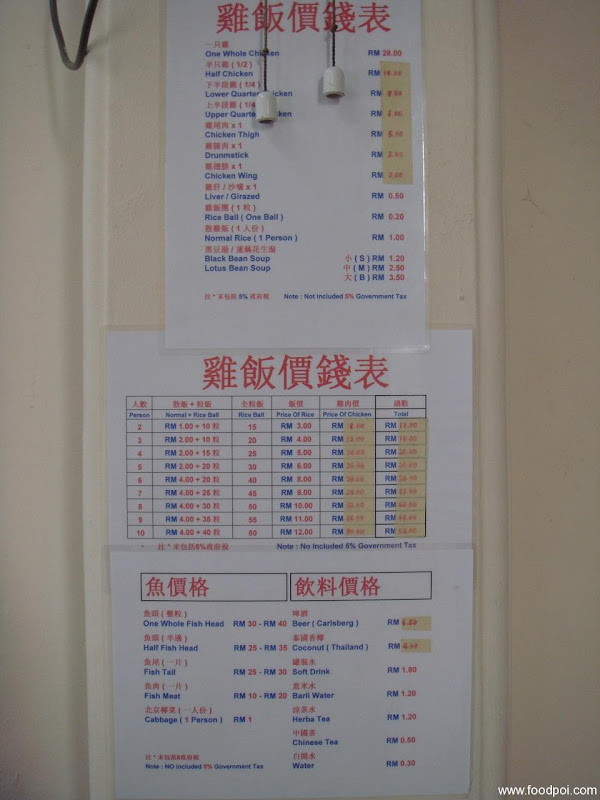 雞飯價錢表
一只雞
One Whole Chicken RM 28.00
半只雞 ( 1/2 )
Half Chicken RM
下半段雞 ( 1/4 )
Lower Quarter RM
上半段雞 ( 1/4
Upper Quarter RM
雞尾肉 x 1
Chicken Thigh RM
雞腿肉 x 1
Drunmstick RM
雞翅膀 x 1
Chicken Wing RM
雞肝 / 沙囊 x 1
Liver / Girazed RM 0.50
雞飯團 ( 1 粒 )
Rice Ball ( One Ball ) RM 0.20
散雞飯 ( 1 人份 )
Normal Rice ( 1 Person ) RM 1.00
黑豆湯 / 蓮藕花生湯
Black Bean Soup 小 ( S ) RM 1.20
Lotus Bean Soup 中 ( M ) RM 2.50
大 ( B ) RM 3.50
注 * 末包括 5% 政府稅 Note : Not Included 5% Government Tax
雞飯價錢表
人數 散飯 + 粒飯 全粒飯 飯價 雞肉價 總數
Person Normal + Rice Ball Rice Ball Price Of Rice Price Of Chicken Total
2 RM 1.00 + 10 粒 15 RM 3.00 RM RM
3 RM 2.00 + 10 粒 20 RM 4.00 RM RM
4 RM 2.00 + 15 粒 25 RM 5.00 RM RM
5 RM 2.00 + 20 粒 30 RM 6.00 RM RM
6 RM 4.00 + 20 粒 40 RM 8.00 RM RM
7 RM 4.00 + 25 粒 45 RM 9.00 RM RM
8 RM 4.00 + 30 粒 50 RM 10.00 RM RM
9 RM 4.00 + 35 粒 55 RM 11.00 RM RM
10 RM 4.00 + 40 粒 60 RM 12.00 RM RM
* 注 * 末包括5%政府稅 Note : No Included 5% Government Tax
魚價格 飲料價格
魚頭 ( 整粒 ) 啤酒
One Whole Fish Head RM 30 - RM 40 Beer ( Carlsberg ) RM
魚頭 ( 半邊 ) 泰國香椰
Half Fish Head RM 25 - RM 35 Coconut ( Thailand ) RM
魚尾 ( 一片 ) 罐裝水
Fish Tail RM 25 - RM 30 Soft Drink RM 1.60
魚肉 ( 一片 ) 薏米水
Fish Meat RM 10 - RM 20 Barli Water RM 1.20
北京椰菜 ( 一人份 ) 涼茶水
Cabbage ( 1 Person ) RM 1 Herba Tea RM 1.20
中國茶
Chinese Tea RM 0.50
白開水
Water RM 0.30
注 * 末包括5%政府稅
Note : NO included 5% Government Tax
www.foodpoi.com